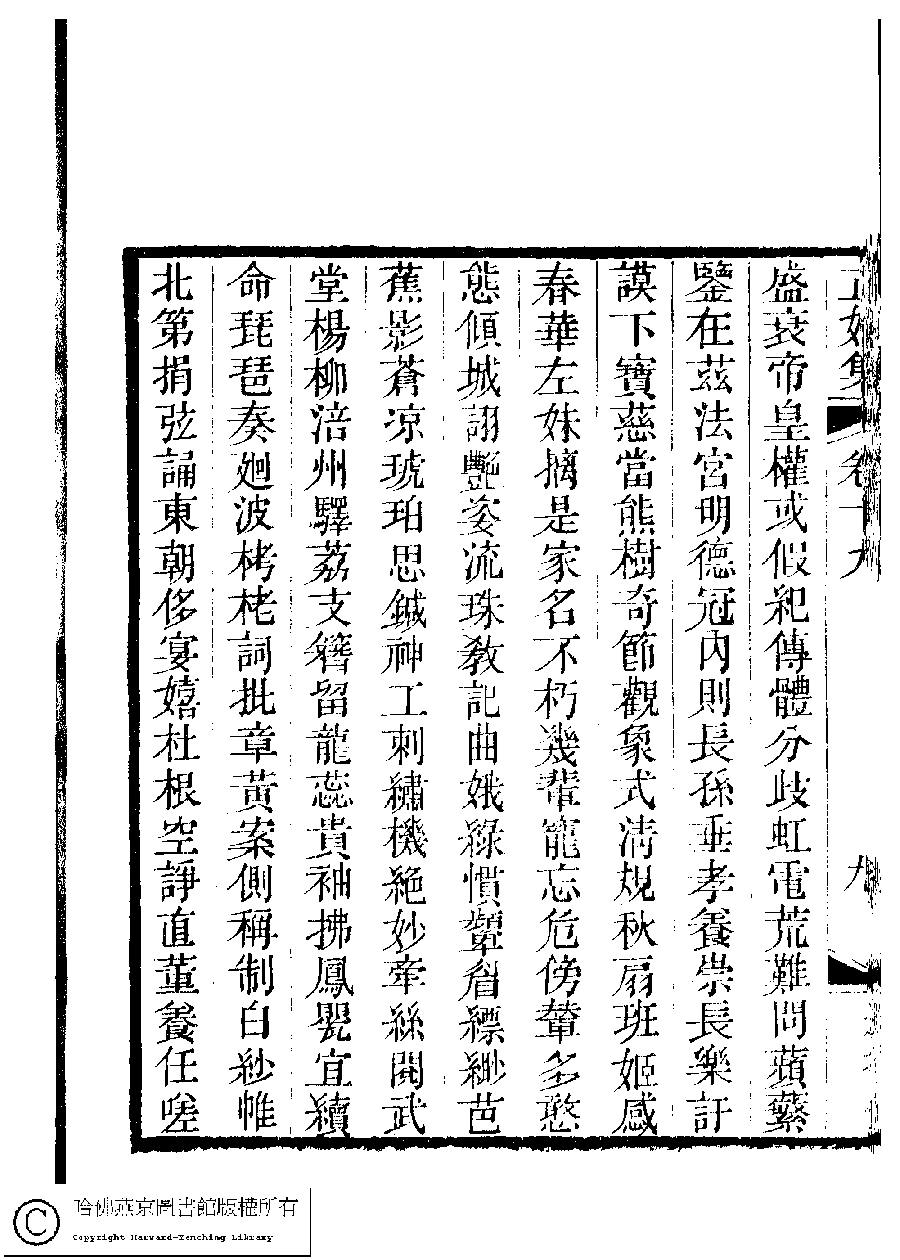 正始集 卷十九 九
盛衰帝皇權或假紀傳體分歧虹電荒難問蘋蘩
鑒在茲法宮明德冠內則長孫垂孝養崇長樂訏
謨下寶慈當熊樹奇節觀象式清規秋扇班姬感
春華左妹摛是家名不朽幾輩寵忘危傍輦多憨
態傾城詡艷姿流珠敎記曲娥綠慣顰眉縹緲芭
蕉影蒼涼琥珀思鍼神工刺繡機絕妙牽絲閒武
堂楊柳涪州驛荔支簪留龍蕊貴袖拂鳳甖宜續
命琵琶奏廻波栲栳詞批章黃案側稱制白紗帷
北第捐弦誦東朝侈宴嬉杜根空諍直董養任嗟
哈佛燕京圖書館版權所有
Copyright Harvard-Yenching Library